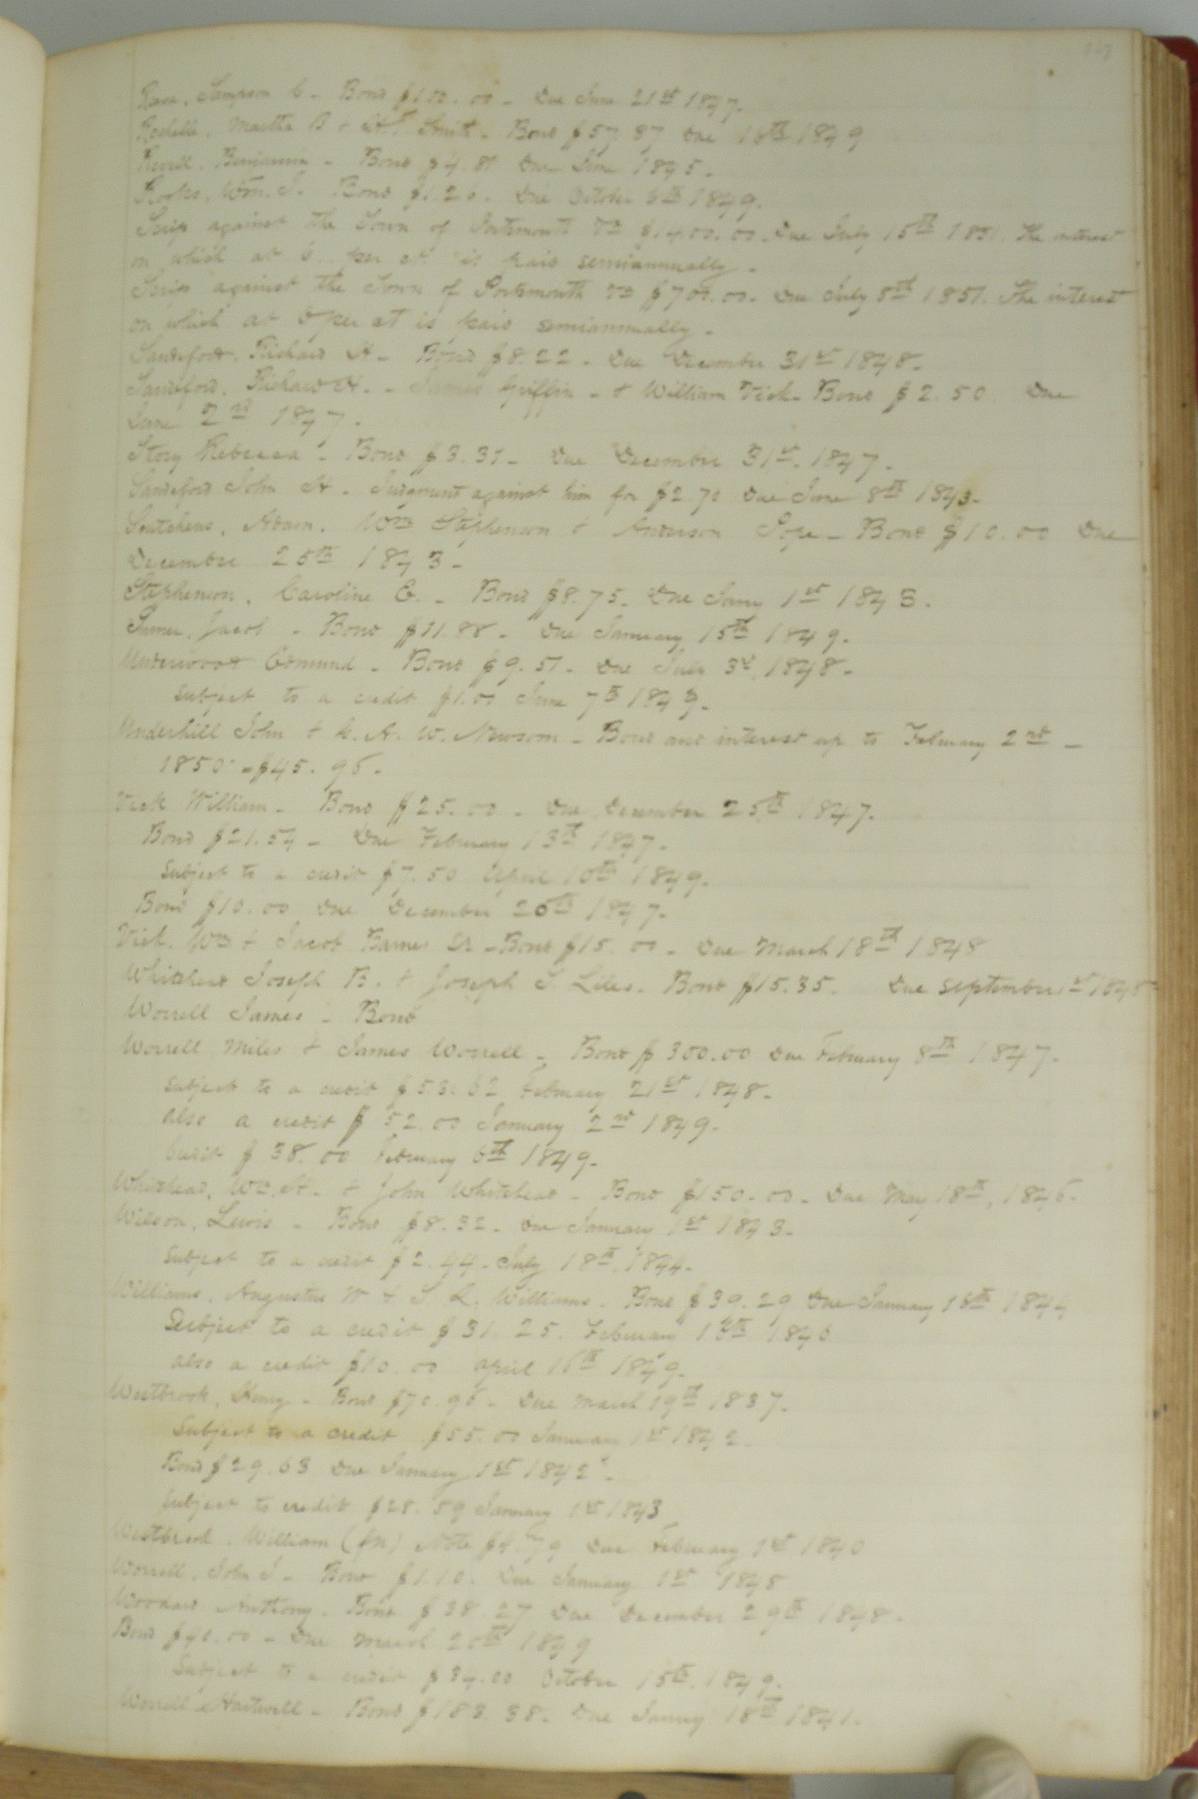 Sampson C. Bond $100.00. Due June 21st 1847.
Rochelle, Martha B & Smith. Bond $57.87 Due 16th 1849
Benjamin. Bond $4.81 Due June 1845.
Rooks, Wm. J. Bond $1.20. Due October 6th 1849.
Scrip against the Town of Portsmouth Va $1400.00. Due July 15th 1851. The interest
on which at 6 per ct is paid semiannually.
Scrip against the Town of Portsmouth Va $700.00. Due July 8th 1851. The interest
on which at 6 per ct is paid semiannually.
Sandiford, Richard H. Bond $8.22. Due December 31st 1848.
Sandiford, Richard H. James Griffin & William Vick. Bond $2.50 Due
June 2nd 1847.
Story Rebecca. Bond $3.31. Due December 31st. 1847.
Sandiford John H. Judgment against him for $2.70 Due June 8th 1843.
Adam. Wm Stephenson & Anderson Pope. Bond $10.00 Due
December 25th 1843.
Stephenson, Caroline E. Bond $8.75. Due Jany 1st 1843.
Jacob. Bond $11.88. Due January 15th 1849.
Underwood Edmund. Bond $9.51. Due July 3d, 1848.
subject to a credit $1.00 June 7th 1849.
Underhill John & A. W. Newsom. Bond and interest up to February 2nd
1850 = $45.96.
Vick William. Bond $25.00. Due December 25th 1847.
Bond $21.54. Due February 13th 1847.
subject to a credit $7.50 April 10th 1849.
Bond $10.00 Due December 26th 1847.
Vick, Wm & Jacob Barnes Bond $15.00. Due March 18th 1848
Whitehead Joseph B. & Joseph S. Liles. Bond $15.35. Due September 1st 1848
Worrell James. Bond
Worrell Miles & James Worrell. Bond $300.00 Due February 8th 1847.
subject to a credit $53.62 February 21st 1848.
also a credit $52.00 January 2nd 1849.
Credit $38.00 February 6th 1849.
Whitehead, Wm. H. & John Whitehead. Bond $150.00. Due May 18th, 1846.
Wilson, Lewis. Bond $8.32. Due January 1st 1843.
subject to a credit $2.44. July 18th, 1844.
Williams, Augustus W & S. Williams. Bond $39.29 Due January 18th 1844
Subject to a credit $31.25. February 1846
also a credit $10.00 April 16th 1849.
Westbrook, Henry. Bond $70.96. Due March 19th 1837.
Subject to a credit $55.00 January 1st 1842.
Bond $29.63 Due January 1st 1842.
subject to credit $28.59 January 1st 1843
Westbrook, William (fn) Note Due February 1st 1840
Worrell, John J. Bond $1.10. Due January 1st 1848
Woodard Anthony. Bond $38.27 Due December 29th 1848.
Bond $40.00. Due March 20th 1849
Subject to a credit $34.00 October 15th, 1849.
Worrell Hartwell. Bond $183.38. Due January 18th 1841.